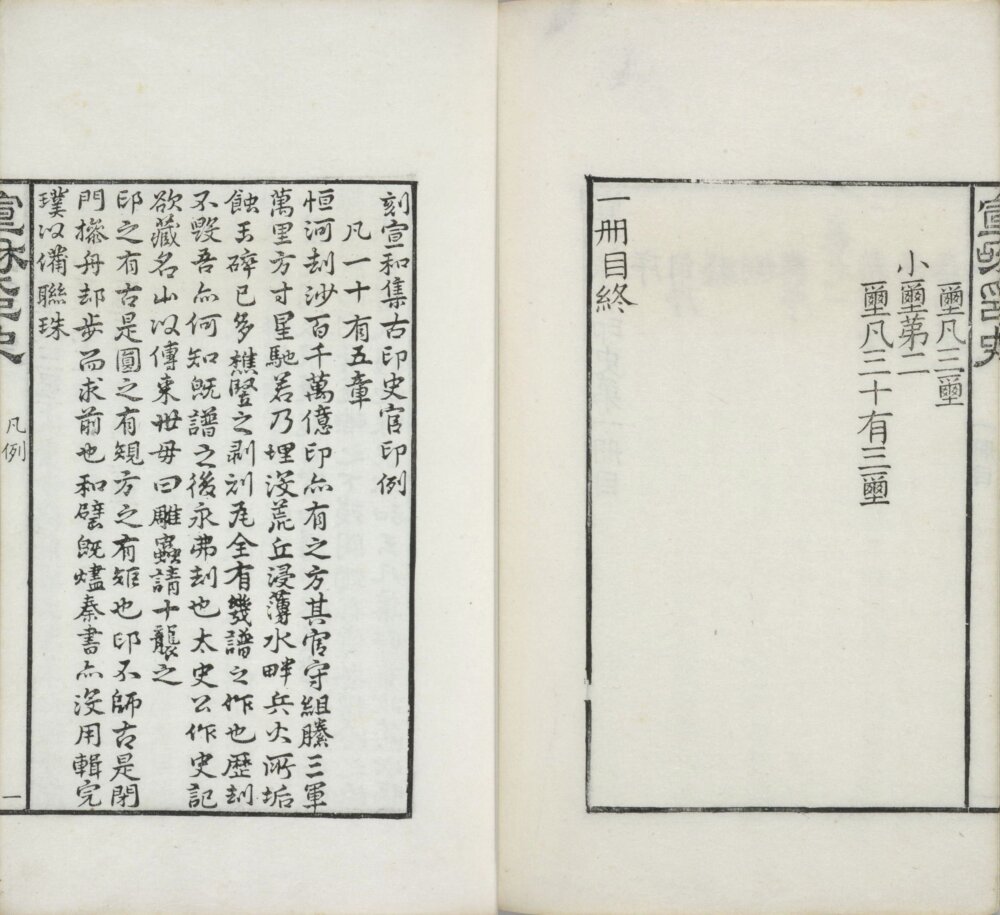 璽凡三璽
小璽第二
璽凡三十有三璽
一冊目終
刻宣和集古印史官印例
凡一十有五章
恒河刦沙百千萬億印亦有之方其官守組縢三軍
萬里方寸星馳若乃埋没荒丘浸薄水畔兵火所垢
蝕玉碎已多樵豎之剥剓瓦全有幾譜之作也歷刦
不毀吾亦何知旣譜之後永弗刦也太史公作史記
欲藏名山以傳來世毋曰雕蟲請十襲之
印之有古是圓之有䂓方之有矩也印不師古是閉
門搽舟却步而求前也和璧旣燼秦書亦没用輯完
璞以備聯珠
凡例
一